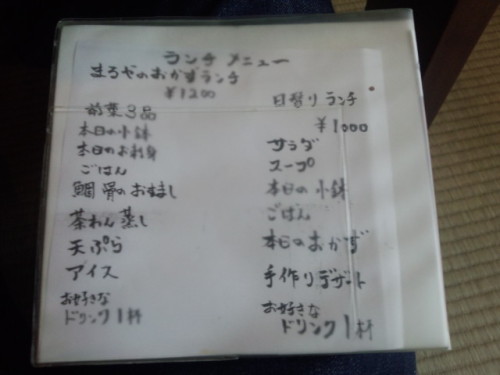 ランチメニュー
まろやのおかずランチ
¥1200
前菜3品
本日の小鉢
本日のお刺身
ごはん
鯛骨のお吸まし
茶わん蒸し
天ぷら
アイス
お好きな
ドリンク1杯
日替りランチ
¥1000
サラダ
スープ
本日の小鉢
ごはん
本日のおかず
手作りデザート
お好きな
ドリンク1杯